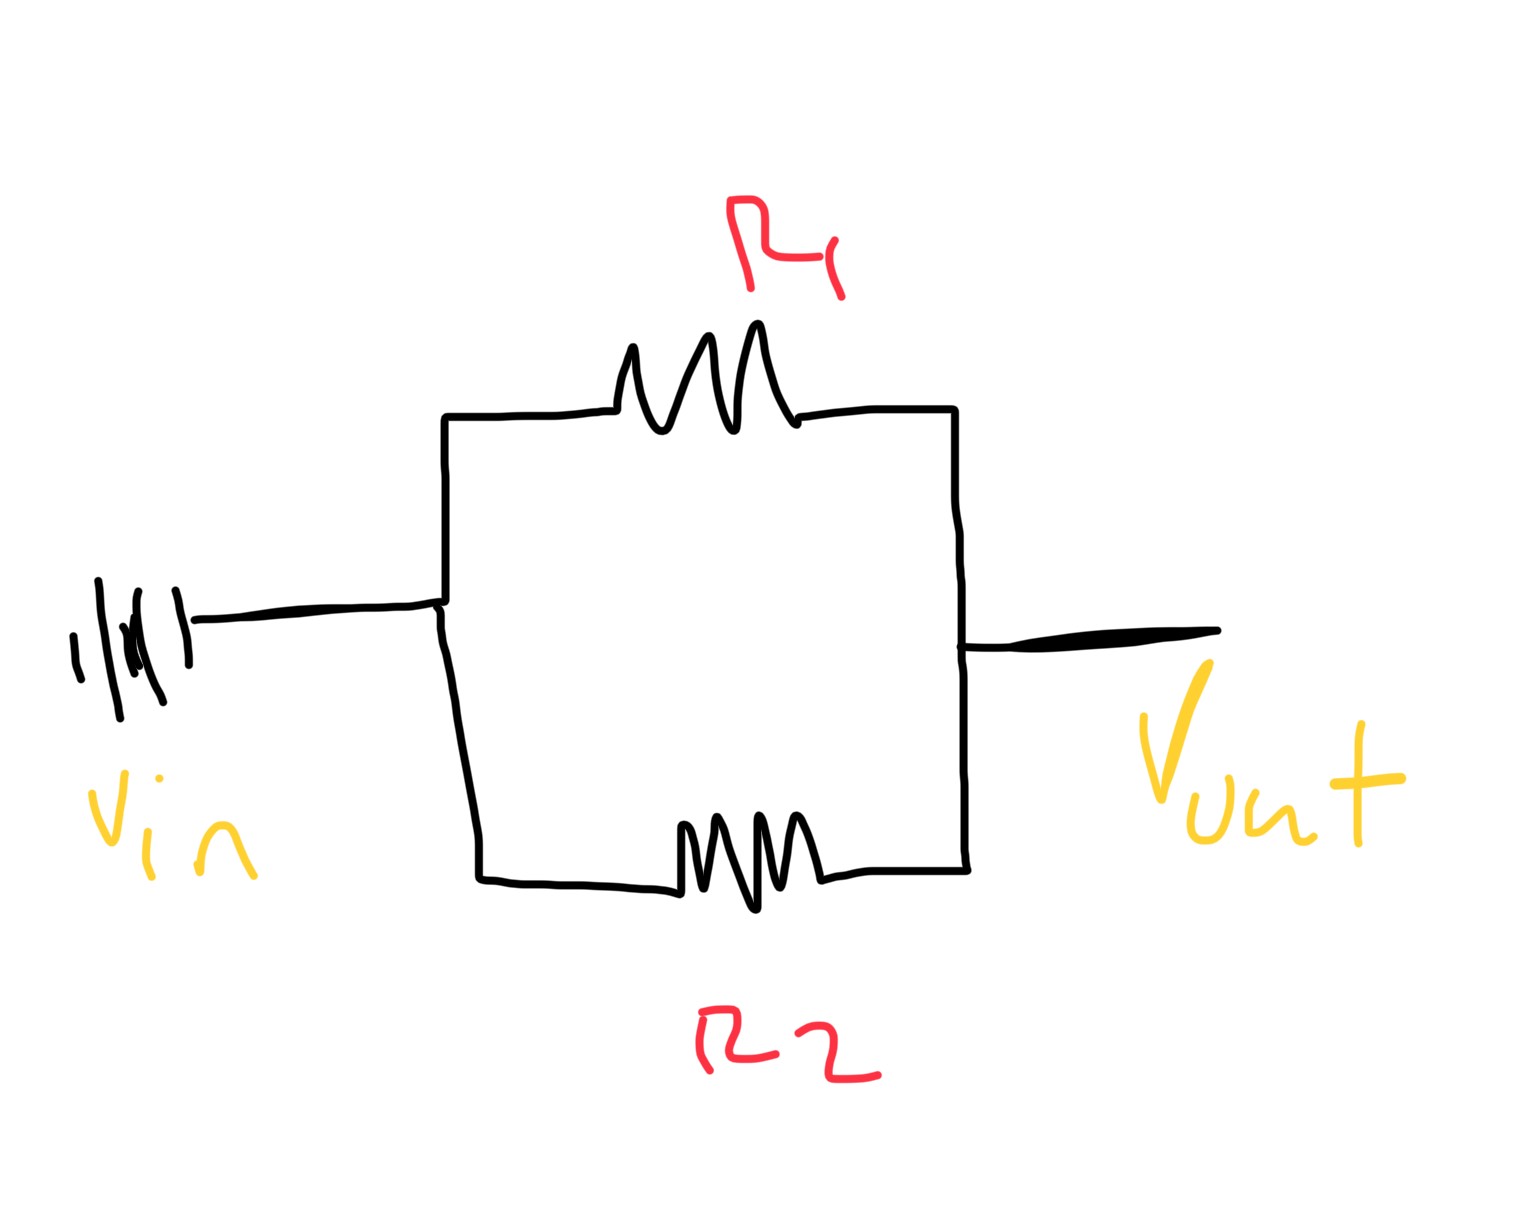 R1
Vin
Vout
R2